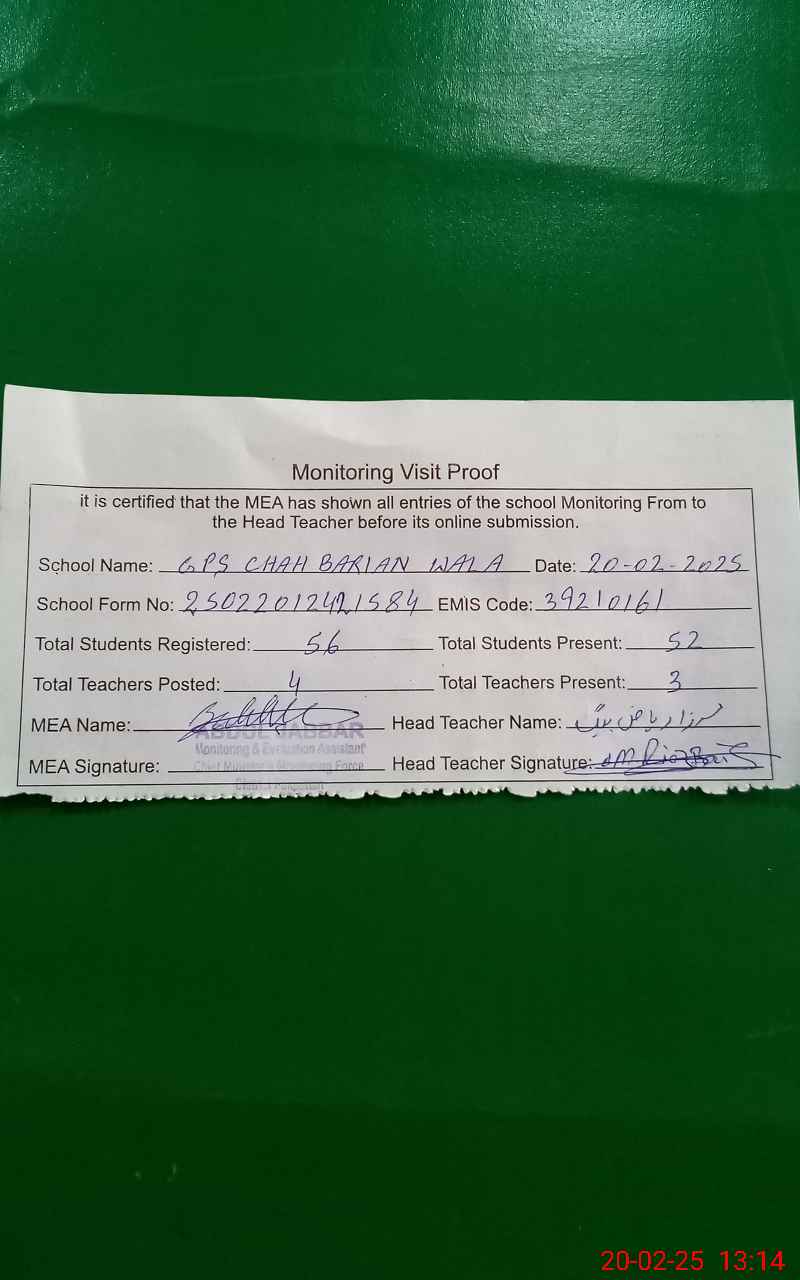 Monitoring Visit Proof
it is certified that the MEA has shown all entries of the school Monitoring From to
the Head Teacher before its online submission.
School Name: GPS CHAH BARIAN WALA Date: 20-02-2025
School Form No: 25022012421584 EMIS Code: 39210161
Total Students Registered: 56 Total Students Present: 52
Total Teachers Posted: 4 Total Teachers Present: 3
MEA Name: Head Teacher Name: مرزا ریاض بیگ
ABDUL JABBAR
Monitoring & Evaluation Assistant
MEA Signature: Head Teacher Signature:
Chief Minister's Monitoring Force
20-02-25 13:14